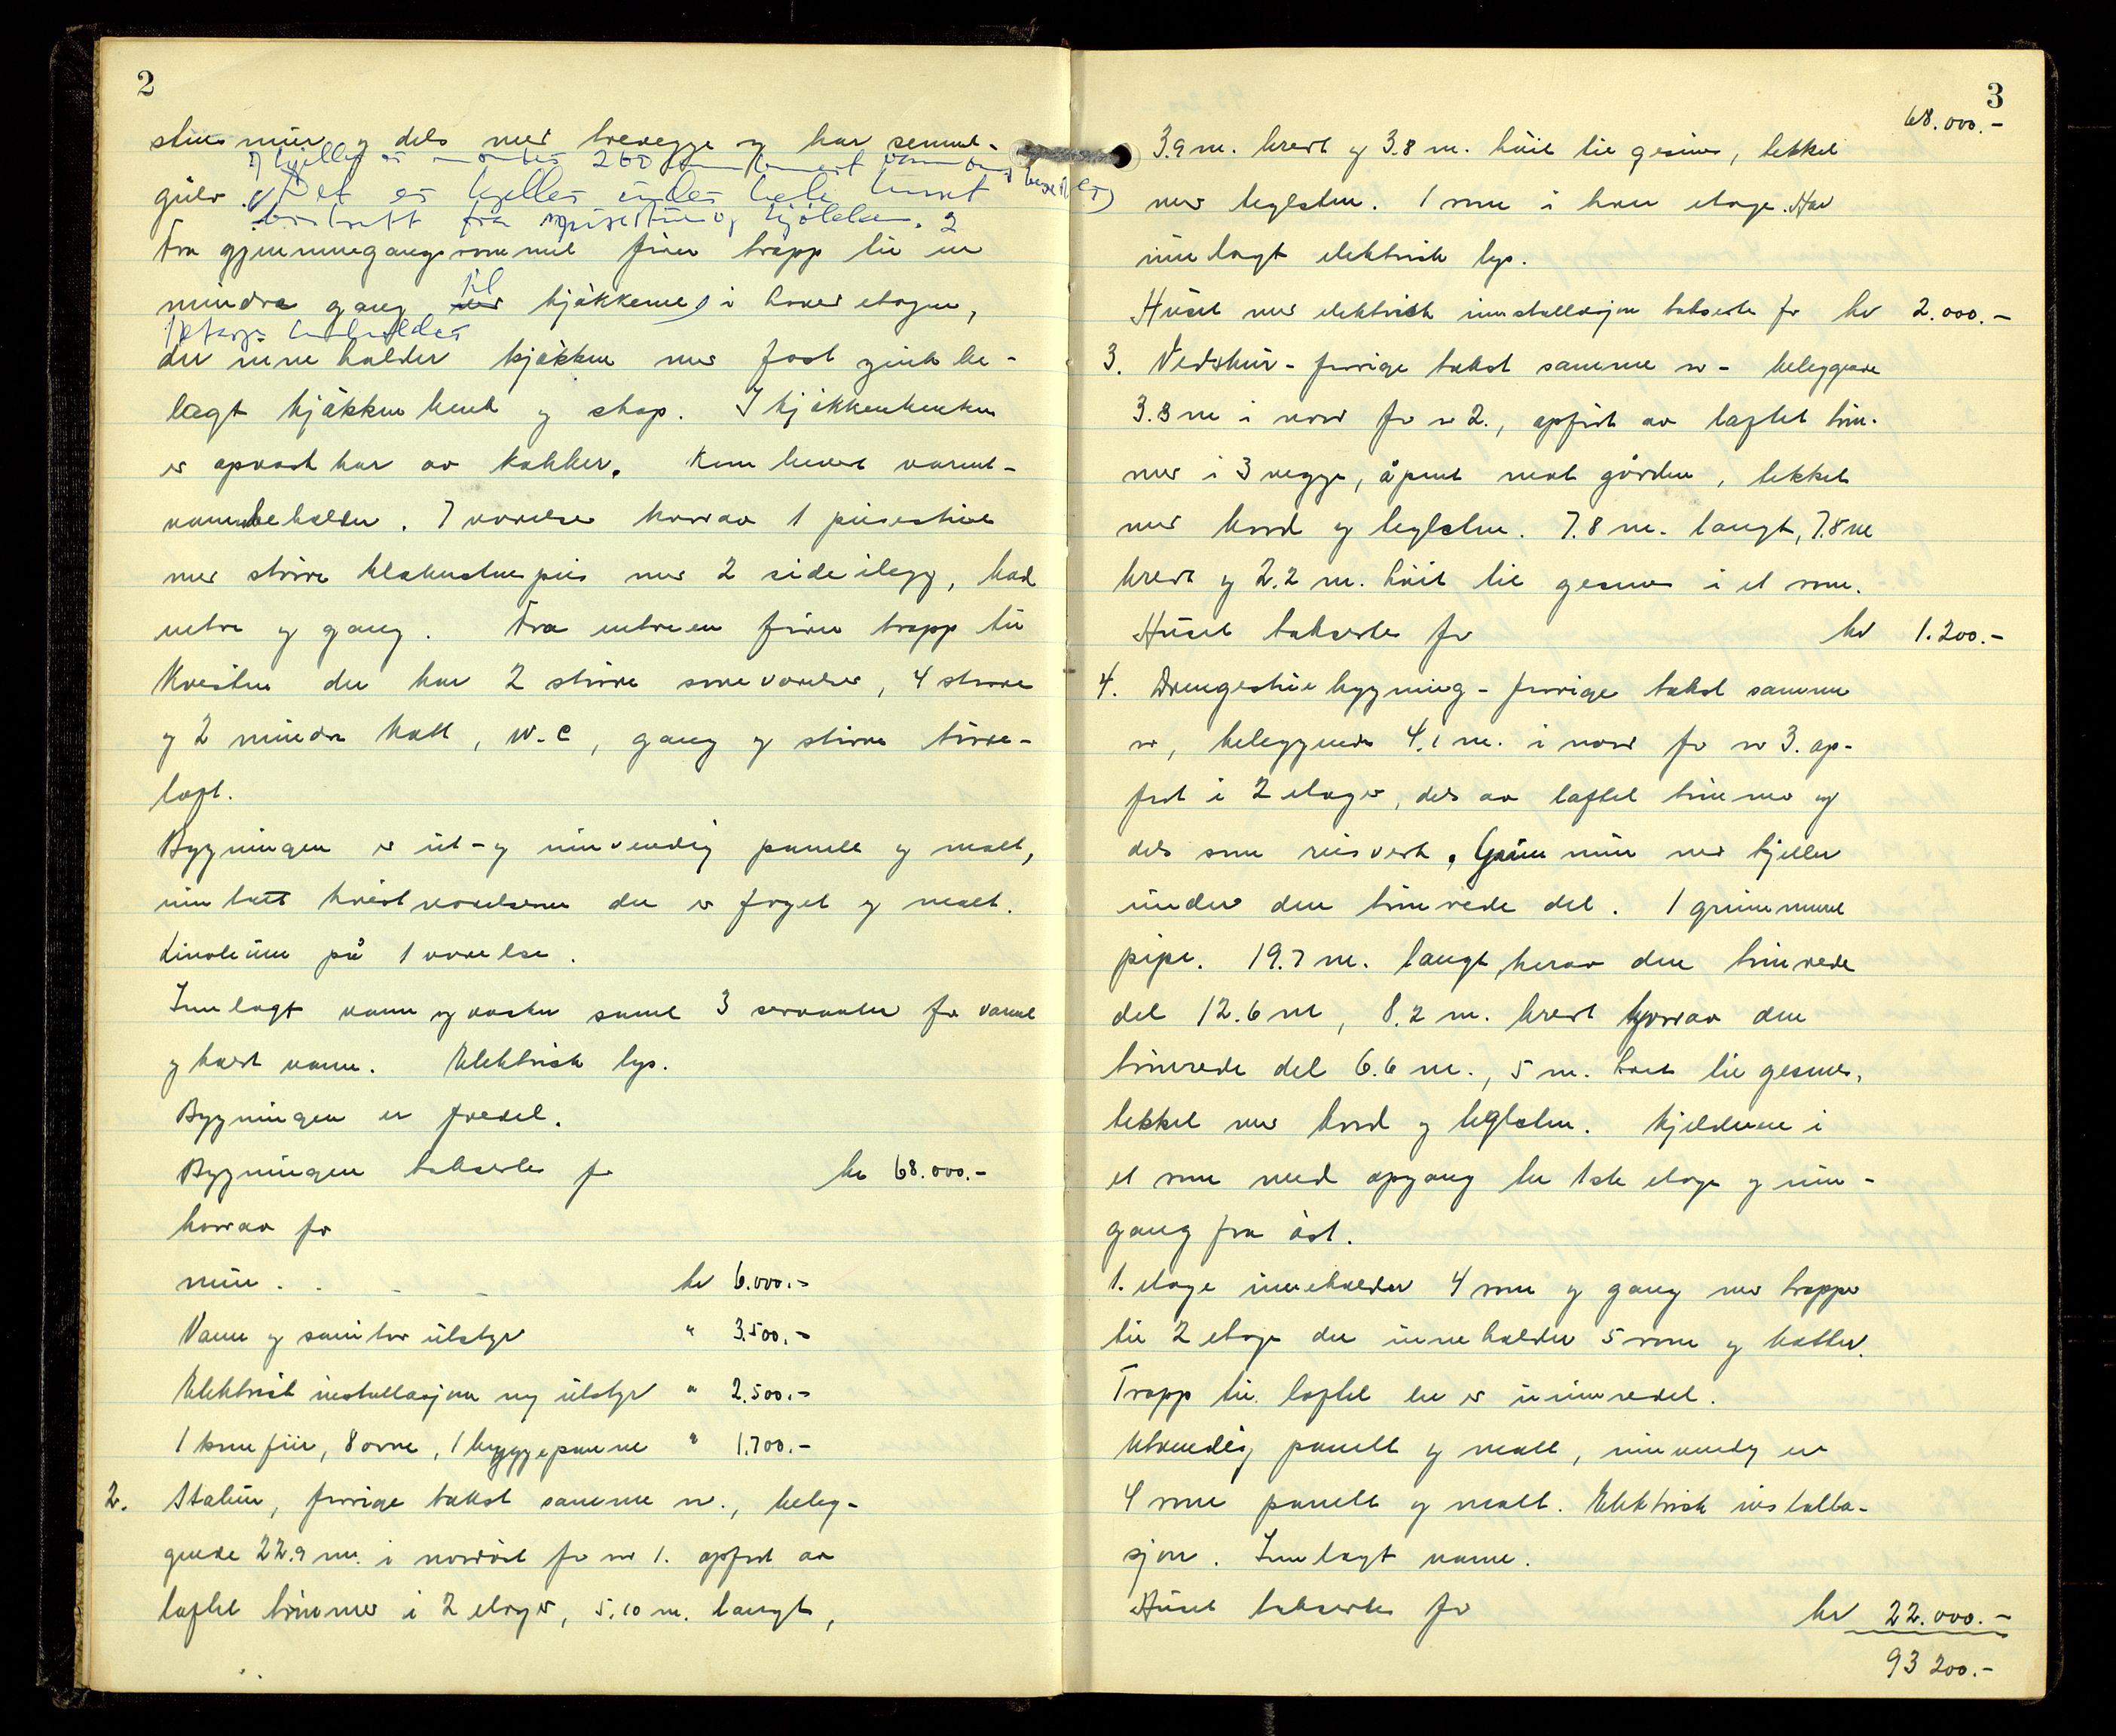 2
stens mur og dels med trevegge og har sement-
I kjeller er montert 260 kombinert
gulv. Det er kjeller under hele huset
bortsett fra spisestue og kjøkken.
Fra gjennemgangsrommet fører trapp til en
mindre gang til kjøkkenet i hovedetagen,
1 etasje inneholder
der inneholder kjøkken med fast zink be-
lagt kjøkkenbenk og skap. I kjøkkenbenken
er opvaskkar av kobber. Kombinert varmt-
vannsbeholder. 7 værelser hvorav 1 peisestue
med større klæberstenspeis med 2 sideilegg, bad
entre og gang. Fra entreen fører trapp til
Kvisten der har 2 større soveværelser, 4 større
og 2 mindre kott, W.C, gang og større tørre-
loft.
Bygningen er ut- og innvendig panelt og malt,
unntatt kvistværelserne der er  og malt.
Linoleum på 1 værelse.
Innlagt vann og vasker samt 3 servanter for varmt
og koldt vann. Elektrisk lys.
Bygningen er fredet.
Bygningen takseres for kr 68.000.-
hvorav for
mur . . - - kr 6.000.-
Vann og sanitær utstyr " 3.500.-
Elektrisk installasjon og utstyr " 2.500.-
1 komfür, 8 ovne, 1 bryggepanne " 1.700.-
2. Stabur, forrige takst samme nr., beleg-
gende 22.9 m. i nordøst for nr 1. opført av
laftet tømmer i 2 etager, 5.10 m. langt,
3
68.000.-
3.9 m. bredt og 3.8 m. høit til gesims, tekket
med teglsten. 1 rum i hver etage. Har
innlagt elektrisk lys.
Huset med elektrisk installasjon takseres for kr 2.000.-
3. Vedskur - forrige takst samme nr - beleggende
3.3 m i nord for nr 2., opført av laftet tøm-
mer i 3 vegge, åpent mot gården, tekket
med bord og teglsten. 7.8 m. langt, 7.8 m
bredt og 2.2 m. høit til gesims i et rum.
Huset takseres for kr 1.200.-
4. Drengestuebygning - forrige takst samme
nr, beleggende 4.1 m. i nord for nr 3. op-
ført i 2 etager, dels av laftet tømmer og
dels som reisverk. Grunnmur med kjeller
under den tømrede del. 1 grunnmuret
pipe. 19.7 m. langt, herav den tømrede
del 12.6 m, 8.2 m. bredt hvorav den
tømrede del 6.6 m., 5 m. høit til gesims,
tekket med bord og teglsten. Kjelderen i
et rum med opgang til 1ste etage og inn-
gang fra øst.
1. etage inneholder 4 rum og gang med trapper
til 2 etage der inneholder 5 rum og kotter.
Trapp til loftet der er uinnredet.
Utvendig panelt og malt, innvendig er
4 rum panelt og malt. Elektrisk installa-
sjon. Innlagt vann.
Huset takseres for kr 22.000.-
93 200.-